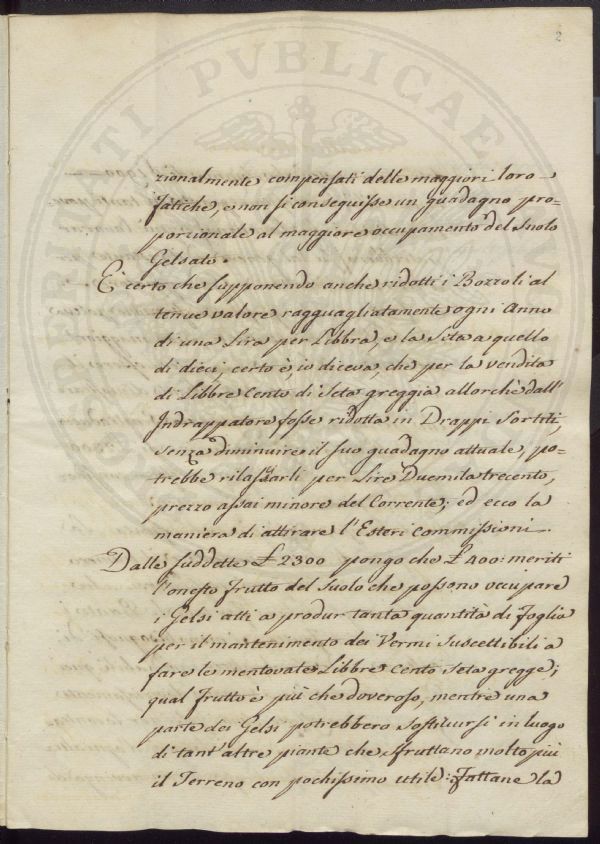 2
zionalmente compensati delle maggiori loro
fatiche, e non si conseguisse un guadagno pro-
porzionale al maggiore occupamento del Suolo
Gelsato.
E' certo che supponendo anche ridotti i Bozzoli al
tenue valore ragguagliatamente ogni Anno
di una Lira per Libbra, e la Seta a quello
di dieci; certo è, io diceva, che per la vendita
di Libbre Cento di Seta greggia allorchè dall'
Indrappatore fosse ridotta in Drappi Sortiti,
senza diminuire il suo guadagno attuale, po-
trebbe rilassarli per Lire Duemila trecento,
prezzo assai minore del Corrente; ed ecco la
maniera di attirare l'Esteri Commissioni.
Dalle suddette £ 2300 pongo che £ 400: meriti
l'onesto frutto del Suolo che possono occupare
i Gelsi atti a produr tanta quantità di foglia
per il mantenimento dei Vermi Suscettibili a
fare le mentovate Libbre Cento Seta gregge;
qual frutto è più che doveroso, mentre una
parte dei Gelsi potrebbero Sostituirsi in luogo
di tant'altre piante che sfruttano molto più
il Terreno con pochissimo utile: Fattane la
PROSPERITATI PVBLICAE